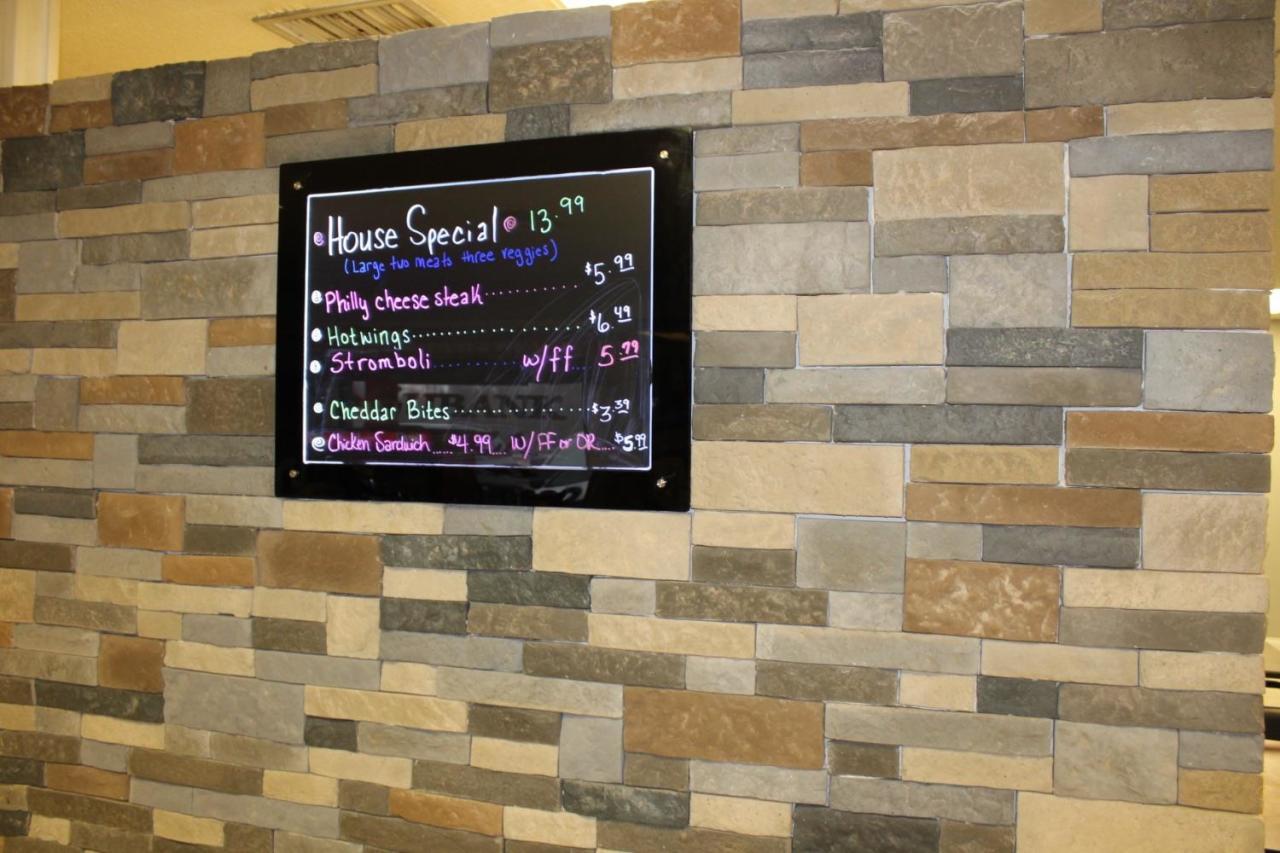 House Special 13.99
(Large two meats three veggies)
Philly cheese steak.......... $5.99
Hotwings..................... $6.49
Stromboli....... w/ff... 5.79
Cheddar Bites................ $3.39
Chicken Sandwich ..... $4.99.... W/FF or OR.... $5.99
BANK